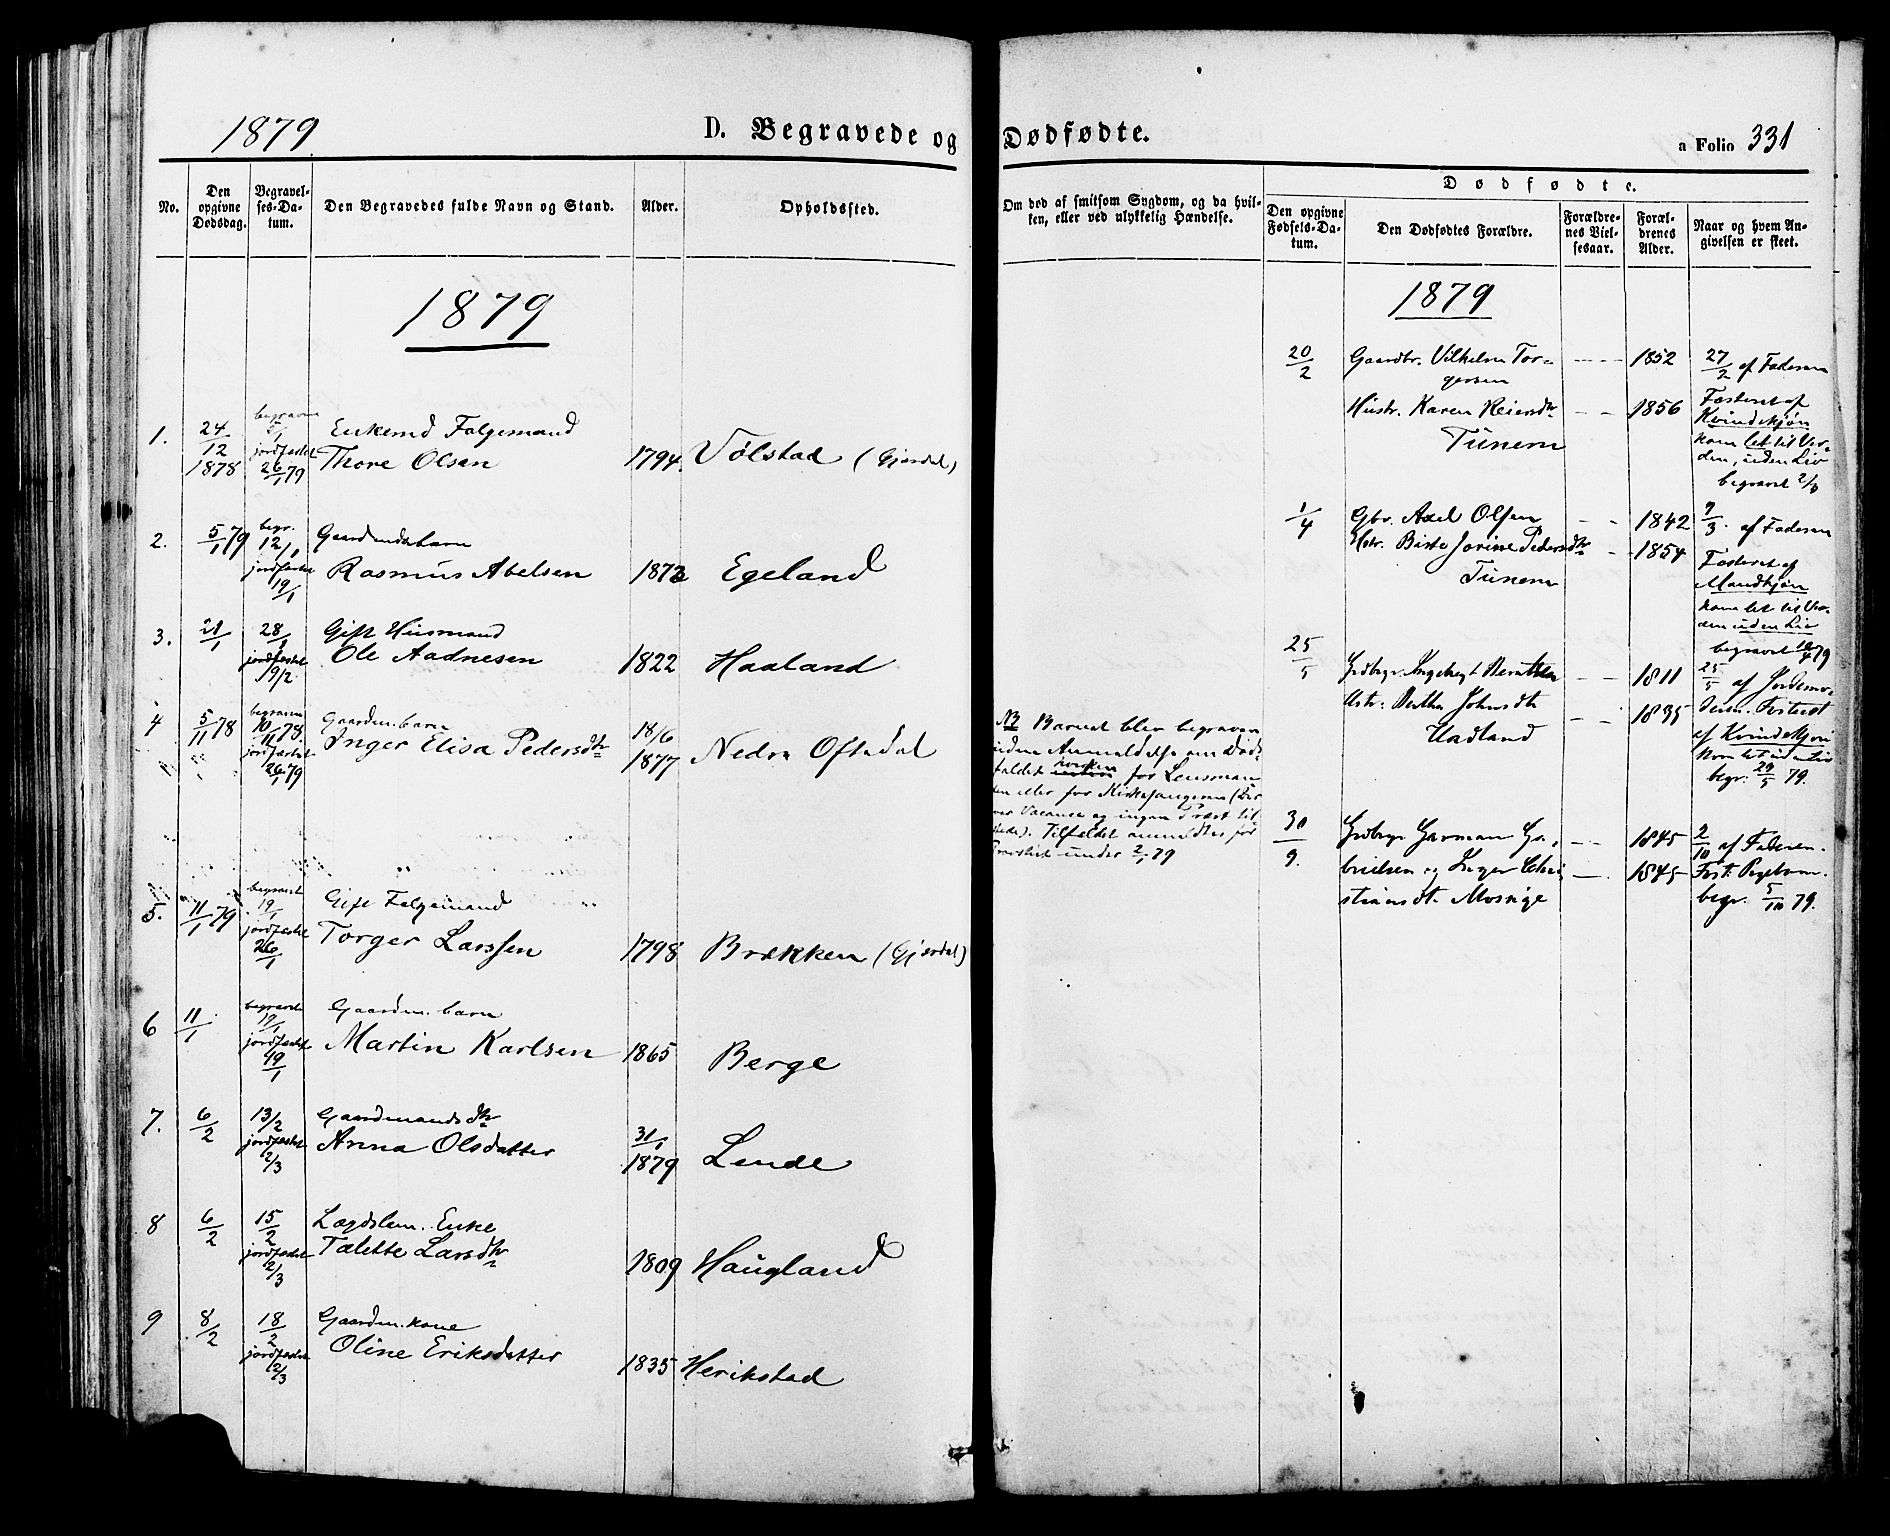 1879
D. Begravede og Dødfødte.
a Folio 331
No.
Den opgivne Dødsdag.
Begravelses-Datum.
Den Begravedes fulde Navn og Stand.
Alder.
Opholdssted.
Om død af smitsom Sygdom, og da hvilken, eller ved ulykkelig Hændelse.
Dødfødte.
Den opgivne Fødsels-Datum.
Den Dødfødtes Forældre.
Forældrenes Vielsesaar.
Forældrenes Alder.
Naar og hvem Angivelsen er skeet.
1879
1. 24/12 1878 begraven 5/1 jordfæstet 26/1 79 Enkemd Følgemand
Thore Olsen 1794 Vølstad (Gjesdal)
2. 5/1 79 begr. 12/1 jordfæstet 19/1 Gaardmdsbarn
Rasmus Abelsen 1873 Egeland
3. 21/1 28/1 jordfæstet 9/2 Gift Husmand
Ole Aadnesen 1822 Haaland
4 5/11 78 begraven 10/11 78 jordfæstet 26/1 79 Gaardm. barn
Inger Elisa Pedersdtr 18/6 1877 Nedre Oftedal
5. 11/1 79 begravet 19/1 jordfæstet 26/1 Gift Følgemand
Torger Larssen 1798 Brækken (Gjesdal)
6 11/1 begravet 19/1 jordfæstet 19/1 Gaardm. barn
Martin Karlsen 1865 Berge
7. 6/2 13/2 jordfæstet 2/3 Gaardmands dtr
Anna Olsdatter 31/1 1879 Lende
8 6/2 15/2 jordfæstet 2/3 Lægdslem. Enke
Talette Larsdtr 1809 Haugland
9 8/2 18/2 jordfæstet 2/3 Gaardm. kone
Oline Eriksdatter 1835 Herikstad
NB Barnet blev begraven
uden Anmeldelse om Døds-
faldet hverken for Lensman-
den eller for Kirkesangeren (Der
var Vacance og ingen Præst til-
stede). Tilfældet anmeldtes for
Provstiet under 2/1 79
1879
20/2 Gaardbr. Vilhelm Tor-
gersen 1852
Hustr. Karen Reiersdtr 1856
Tunem
27/2 af Faderen
Fosteret af
Kvindekjøn
kom let til Ver-
den, uden Liv
begravet 2/3
1/4 Gbr. Axel Olsen 1842
Hstr. Birte Jorine Pedersdtr 1854
Tunem
7/3. af Faderen
Fosteret af
Mandkjøn
kom let til Ver-
den uden Liv
begravet 10/4 79
25/5 Grdbgr. Ingebregt Berntsen 1811
Hstr: Bertha Johnsdtr 1835
Uadland
25/5 af Jordemo-
deren. Fosteret
af Kvindekjøn
kom let uden Liv
begr. 29/5 79.
30/9. Grdbgr Herman Ga-
brielsen og Inger Chri-
stiansdt. Mosnige
1845
1845
2/10 af Faderen.
Fost: Pigebarn.
begr. 5/10 79.